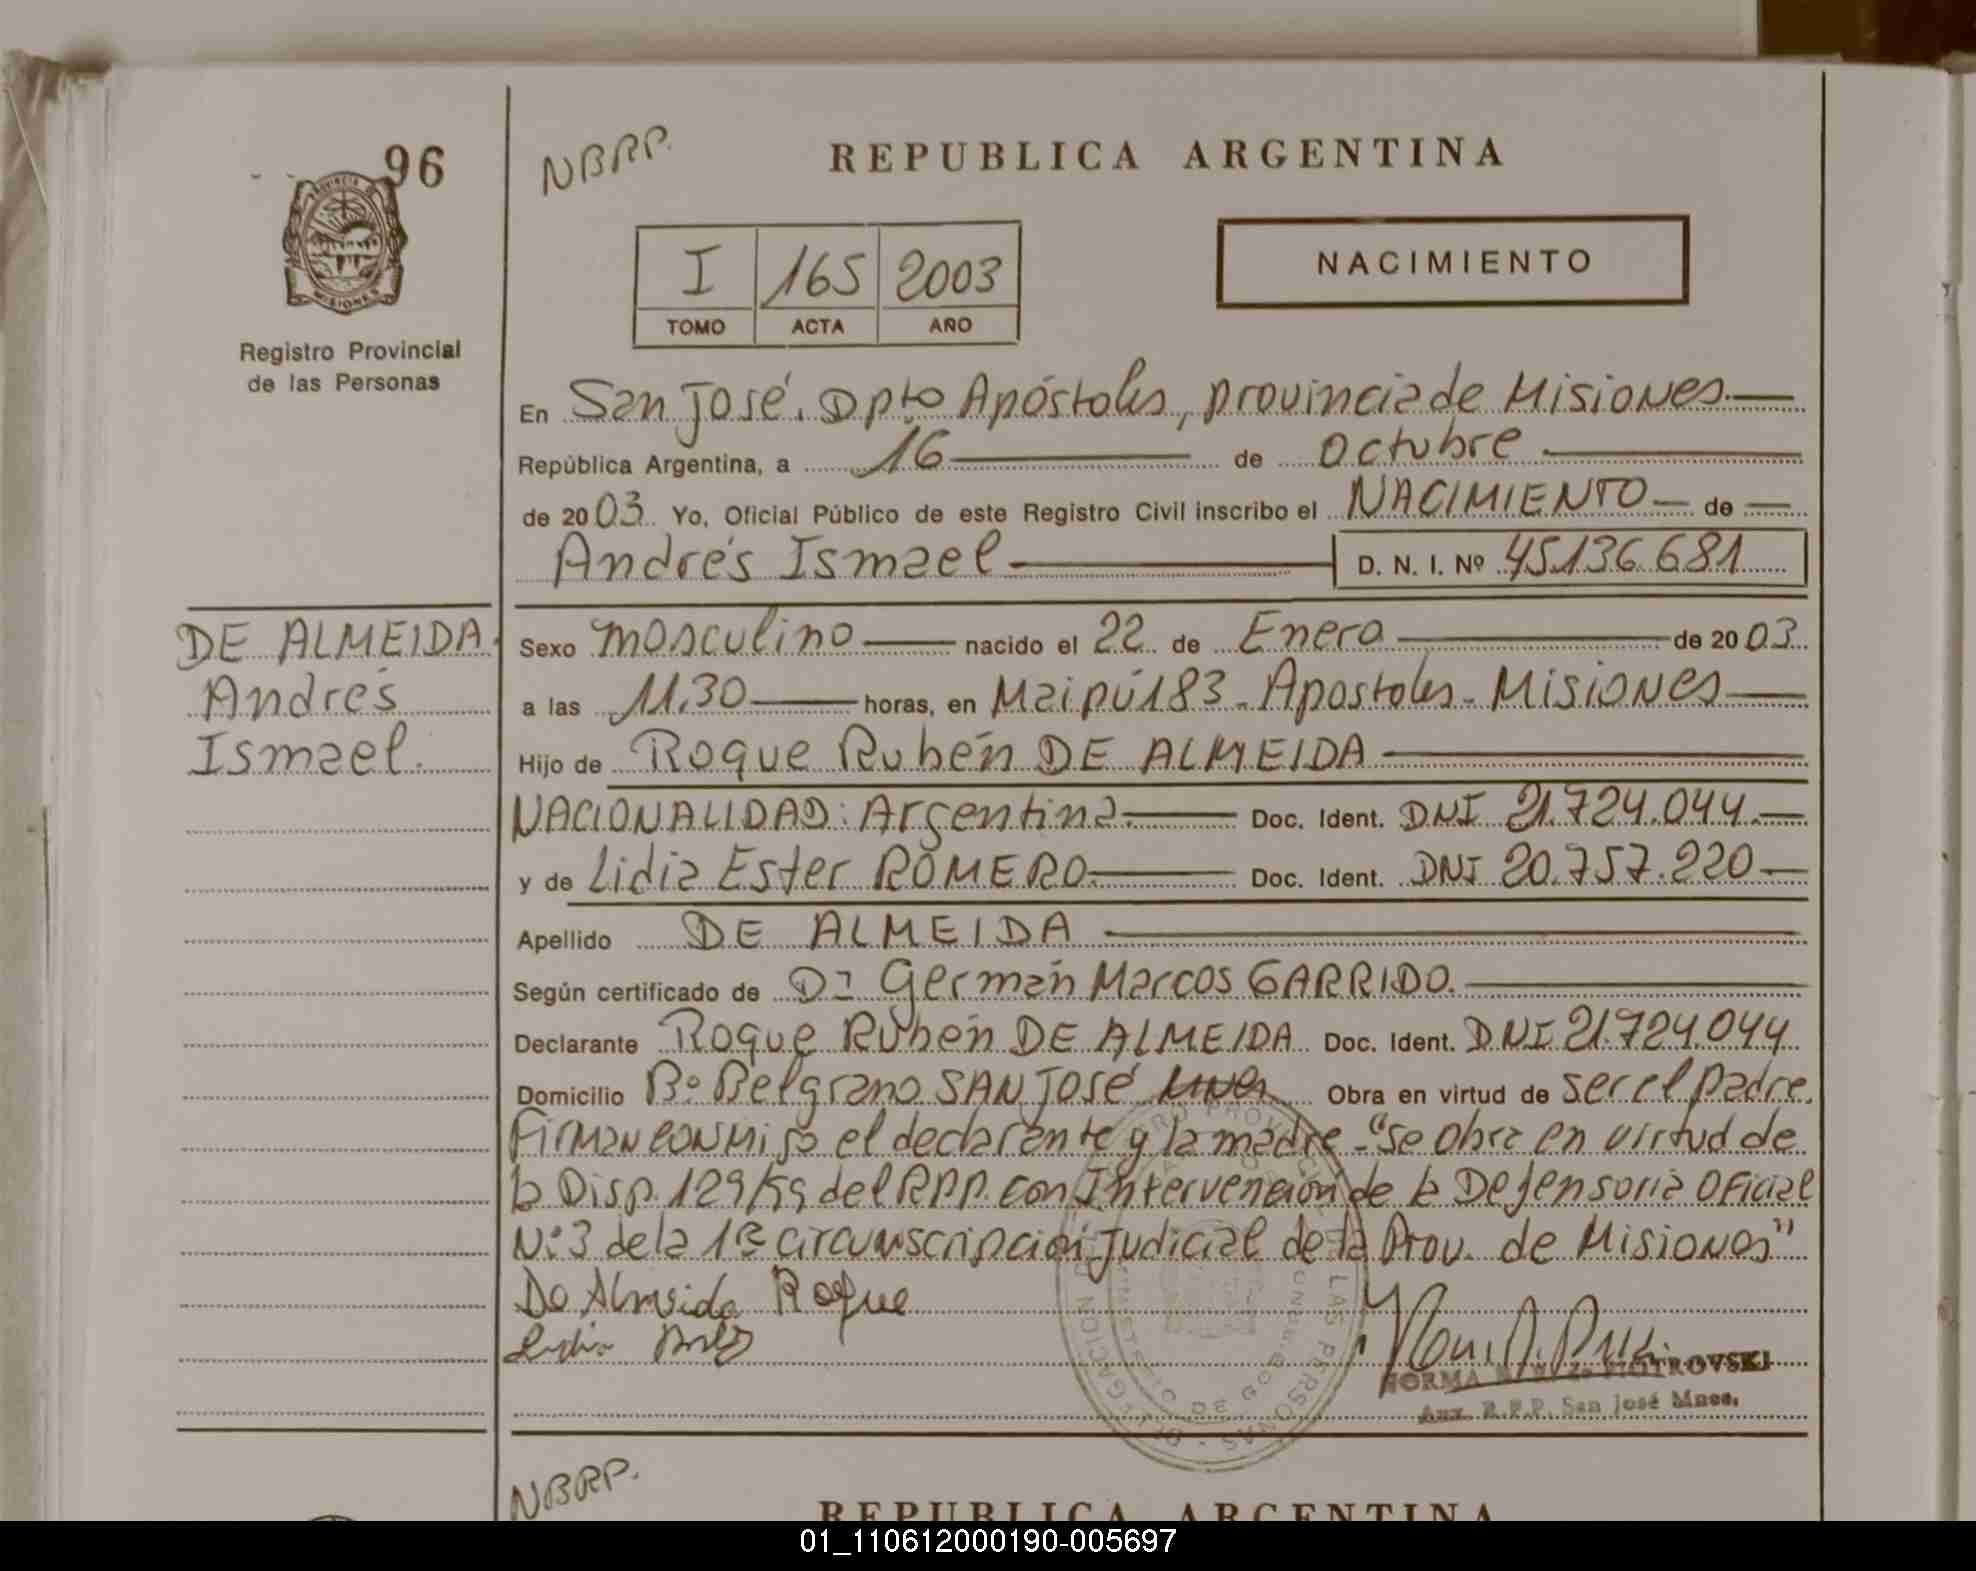 96
NBRP.
REPUBLICA ARGENTINA
PROVINCIA DE
MISIONES
Registro Provincial
de las Personas
I 165 2003
TOMO ACTA AÑO
NACIMIENTO
En San José. Dpto Apóstoles, provincia de Misiones.
República Argentina, a 16 de Octubre
de 2003. Yo, Oficial Público de este Registro Civil inscribo el NACIMIENTO de
Andrés Ismael D. N. I. Nº 45136.681
DE ALMEIDA.
Andrés
Ismael.
Sexo masculino nacido el 22 de Enero de 2003.
a las 11.30 horas, en Maipú 183 - Apostoles - Misiones
Hijo de Roque Rubén DE ALMEIDA
NACIONALIDAD: Argentina. Doc. Ident. DNI 21.724.044.
y de Lidia Ester ROMERO. Doc. Ident. DNI 20.757.220
Apellido DE ALMEIDA
Según certificado de Dr German Marcos GARRIDO.
Declarante Roque Rubén DE ALMEIDA Doc. Ident. DNI 21.724.044
Domicilio Bº Belgrano SAN JOSÉ Obra en virtud de ser el padre.
Firman conmigo el declarante y la madre - "se obra en virtud de
la Disp. 129/99 del RPP. con Intervención de la Defensoria Oficial
Nº 3 de la 1ra circunscripción Judicial de la Prov. de Misiones"
De Almeida Roque
Lidia
NORMA PIOTROVSKI
Aux. R.P.P. San José Mnes.
NBRP.
REPUBLICA ARGENTINA
01_110612000190-005697